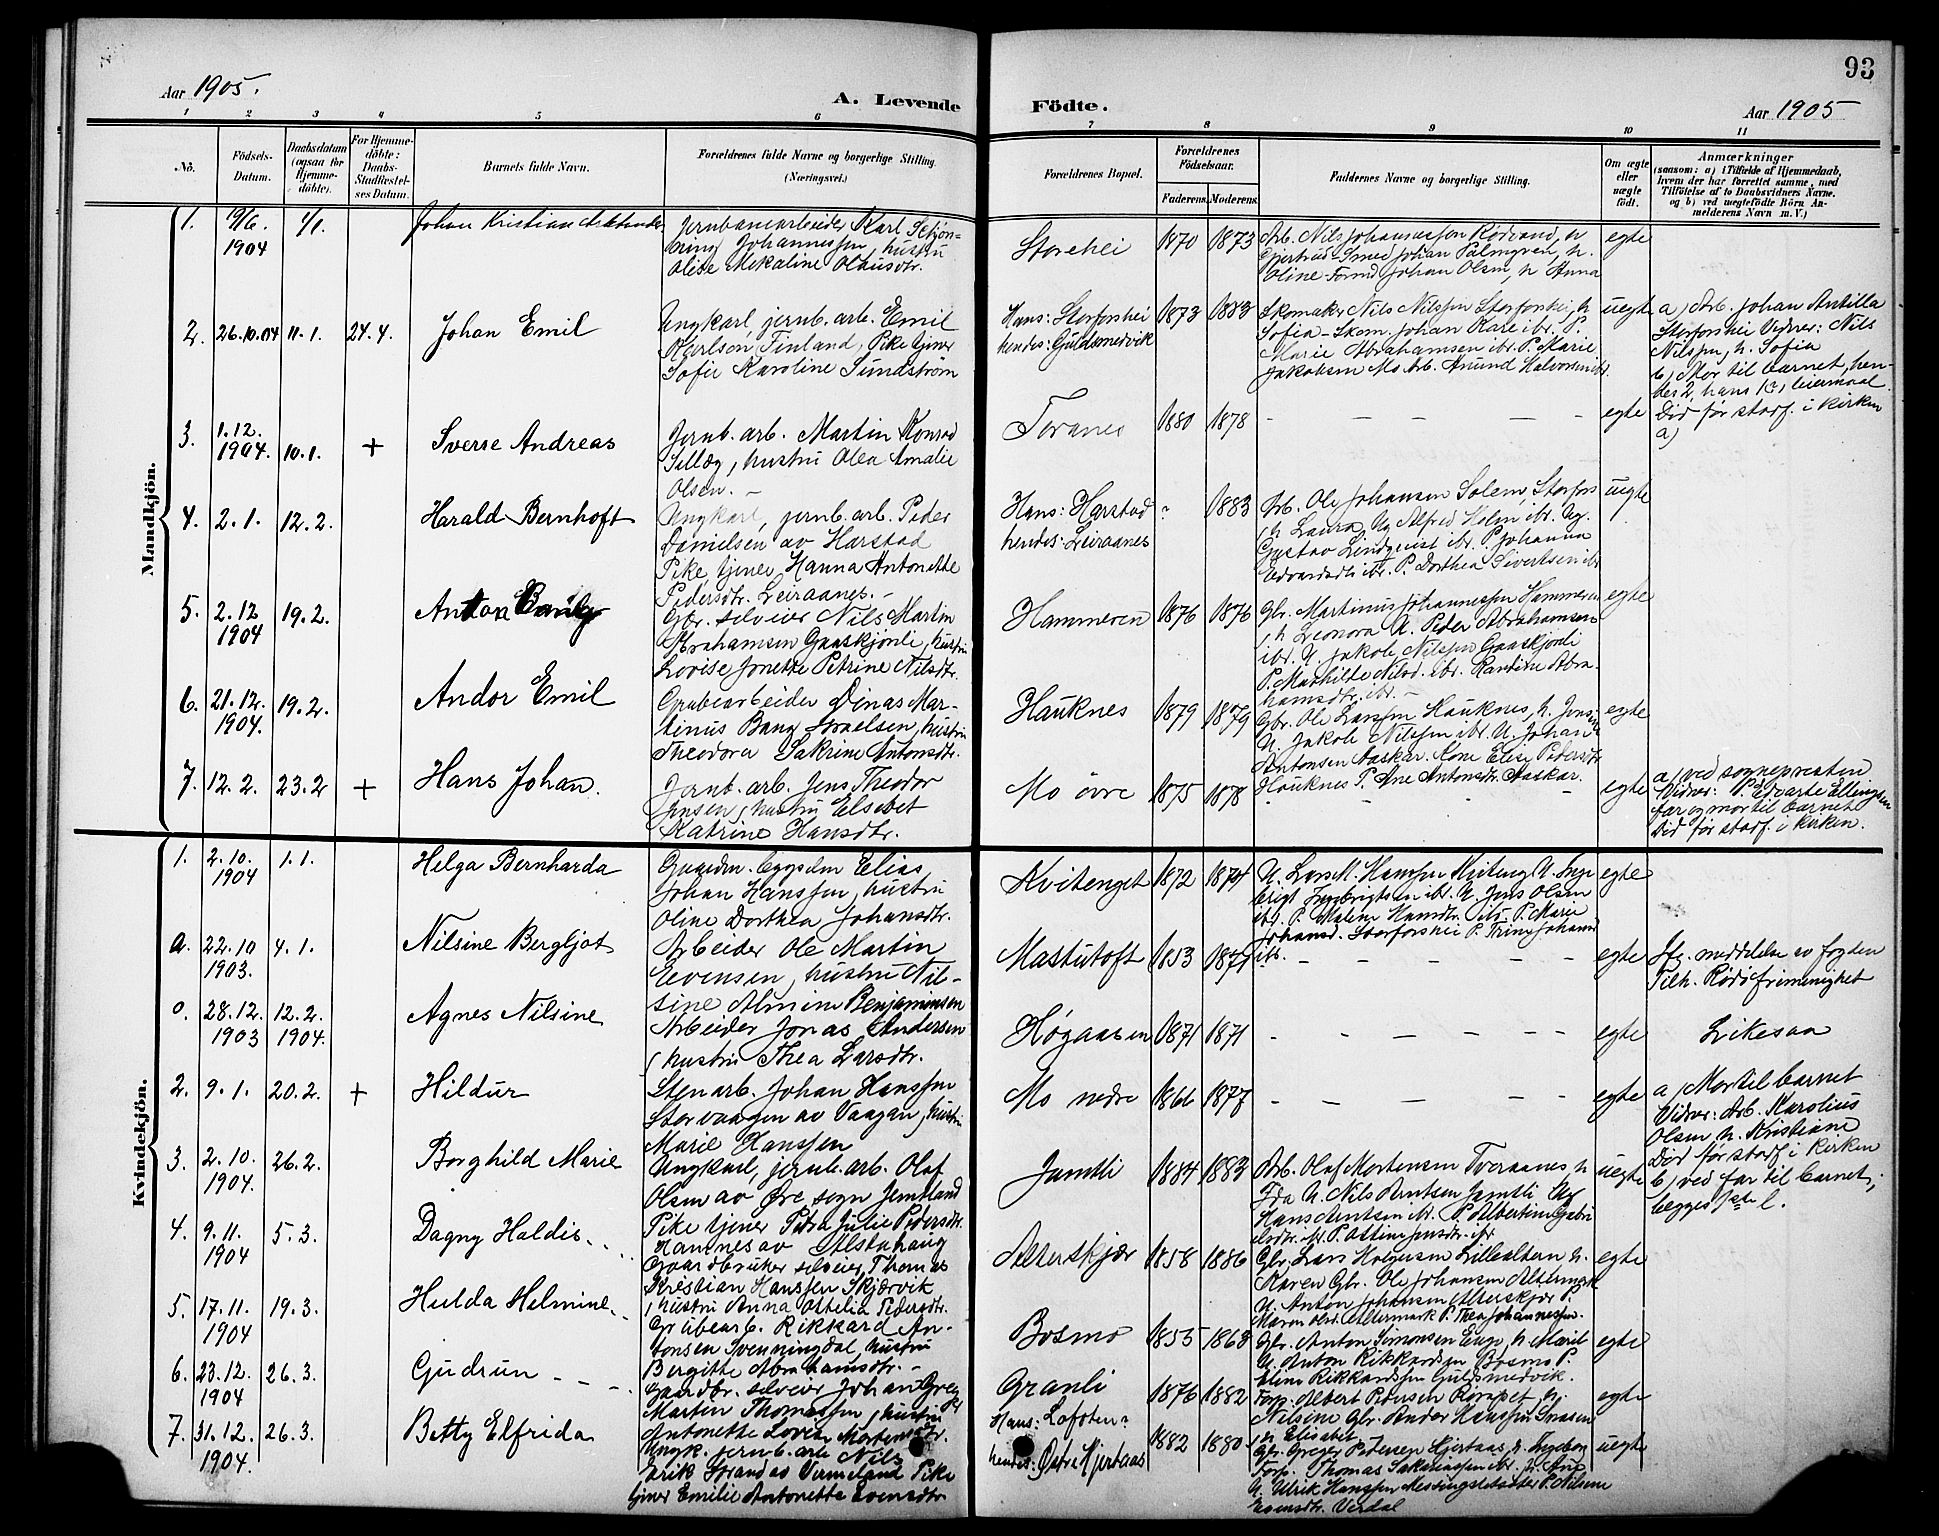 93
Aar 1905.
A. Levende Födte.
Aar 1905
1 2 3 4 5 6 7 8 9 10 11
No.
Födsels-Datum.
Daabsdatum (ogsaa for Hjemmedöbte).
For Hjemmedöbte: Daabs-Stadfæstelses Datum.
Barnets fulde Navn.
Forældrenes fulde Navne og borgerlige Stilling. (Næringsvei.)
Forældrenes Bopæl.
Forældrenes Födselsaar.
Faderens. Moderens.
Faddernes Navne og borgerlige Stilling.
Om ægte eller uægte födt.
Anmærkninger
(saasom: a) i Tilfælde af Hjemmedaab, hvem der har forrettet samme, med Tilföielse af to Daabsvidners Navne, og b) ved uegtefödte Börn Anmelderens Navn m. V.)
Mandkjön.
1. 19/6. 1904 1/1. Johan Kristian Aleksander
Jernbanearbeider Karl Schjön-
ning Johannessen, hustru
Olise Mekaline Olausdtr.
Storehei 1870 1873
Arb. Nils Johannessen Rödvand, h.
Gjertrud - Smed Johan Palmgren, h.
Oline - Johan Olsen, h. Anna
egte
2. 26.10.04 11.1. 24.4. Johan Emil
Ungkarl, jernb. arb. Emil
Karlson, Finland, Pike tjener
Sofie Karoline Sundström
Hans: Storforshei
hendes: Guldsmedvik
1873 1883
Skomaker Nils Nilssen Storforshei, h.
Sofia - Skom. Johan Kare ibr. P.
Marie Abrahamsen ibr. P. Marie
Jakobsen Mo Arb. Anund Halvorsen ibr.
uegte
a) Arb. Johan Antilla
Storforshei Vidner: Nils
Nilssen, h. Sofia
b) Mor til barnet, hen-
des 2, hans 1ste leiermaal
3. 1.12. 1904. 10.1. + Sverre Andreas
Jernb. arb. Martin Konrad
Selläg, hustru Olea Amalie
Olsen. -
Toranes 1880 1878
- - - - -
egte
Död før stadf. i kirken
a)
4. 2.1. 12.2. Harald Bernhoft
Ungkarl, jernb. arb. Peder
Danielsen av Harstad
Pike, tjener Hanna Antonette
Pedersdtr. Leiraanes. -
Hans: Harstad
hendes: Leiraanes
? 1883
Arb. Ole Johansen Solem, Storfors
, h. Laura, Ug. Alfred Holm ibr. Ug.
Gustav Lindqvist ibr. P. Johanna
Edvardsdtr ibr. P. Dorthea Sivertsen ibr
uegte
5. 2.12 1904 19.2. Anton
Gbr. selveier Nils Martin
Abrahamsen Gaaskjönli, hustru
Lovise Jonette Petrine Nilsdtr.
Hammeren 1876 1876
Gbr. Martinus Johannessen Hammeren
, h. Leonora U. Peder Abrahamsen
ibr. U. Jakob Nilssen Gaaskjönli
P. Mathilde Nilsd. ibr. Randine Abra-
hamsdtr. ibr. -
egte
6. 21.12. 1904. 19.2. Andor Emil
Grubearbeider Dinas Mar-
tinus Bang Israelsen, hustru
Theodora Sakrine Antonsdtr.
Hauknes 1879 1879
Gbr. Ole Larssen Hauknes, h. Jens
U. Jakob Nilssen ibr. U. Johan
Antonsen Aaskar. Kone Elise Pedersdtr
Hauknes P. Ane Antonsdtr. Aaskar.
egte
7. 12.2. 23.2 + Hans Johan.
Jernb. arb. Jens Theodor
Jensen, hustru Elsebet
Katrine Hansdtr.
Mo övre 1875 1878
- - - -
egte
a) ved sognepresten
Vidner: P. Edvarte Ellingsen
far og mor til barnet
Död før stadf. i kirken.
Kvindekjön.
1. 2.10. 1904 1.1. Helga Bernharda
Elias
Johan Hanssen, hustru
Oline Dorthea Johansdtr.
Kvitenget 1872 1874
U. Lars M. Hanssen Kviteng U. Inge
brigt Ingebrigtsen ibr. U. Jens Olsen
ibr. P. Malene Hansdtr. ibr. P. Marie
Johansd. Storforshei P. Trine Johansd
ibr.
egte
a. 22.10 1903. 4.1. Nilsine Bergljot
Arbeider Ole Martin
Evensen, hustru Nil-
sine Almine Benjaminsen
Mastutoft 1853 1871
- - - - -
egte
Ifg. meddelelse av fogden
Tilh. Rödö frimenighet
0. 28.12. 1903 12.2. 1904. Agnes Nilsine
Arbeider Jonas Andersen
, hustru Thea Larsdtr.
Høgaasen 1871 1871
- - - - -
egte
Likesaa
2. 9.1. 20.2. + Hildur
Stenarb. Johan Hanssen
Storvaagen av Vaagan, hustru
Marie Hanssen
Mo nedre 1866 1877
- - - - -
egte
a) Mor til barnet
Vidner: Arb. Karolius
Olsen h. Kristiane
Död før stadf. i kirken
3. 2.10. 1904. 26.2. Borghild Marie
Ungkarl, jernb. arb. Olaf
Olsen av Øre sogn Jemtland
Pike tjener Petra Julie Pedersdtr.
Hamnes av Alstahaug
Jamtli 1884 1883
Arb. Olaf Mortensen Tveraanes, h
Ida U. Nils Arntsen Jamtli Ug
Hans Arntsen ibr. P. Albertine Gabri
elsdtr. ibr. P. Ottine Jensdtr. ibr
uegte
b) ved far til barnet;
begges 1ste l.
4. 9.11. 1904 5.3. Dagny Haldis
Gaardbruker selveier, Thomas
Kristian Hanssen Skjærvik
, hustru Anna Ottelia Pedersdtr.
Alterskjær 1858 1886
Gbr. Lars Holgersen Lillealteren h.
Karen Gbr. Ole Johansen Altermark
U. Anton Johansen Alterskjær P.
Maren Olsd. Altermark P. Thea Johannessen.
egte
5. 17.11. 1904 19.3. Hulda Helmine
Grubearb. Rikkard An-
tonsen Svenningdal, hustru
Bergitte Abrahamsdtr. -
Bosmo 1855 1868
Gbr. Anton Simonsen Enge, h. Marit
U. Anton Rikkardsen Bosmo P.
Eline Rikkardsen Guldsmedvik.
egte
6. 23.12. 1904 26.3. Gudrun
Gaardbr. selveier Johan Greg
Martin Thomassen, hustru
Antonette Lovise Mortensdtr.
Granli 1876 1882
Forp. Albert Pedersen Rompet h.
Nilsine Gbr. Ander Hanssen
, h. Elisabet
egte
7. 31.12. 1904. 26.3. Betty Elfrida
Ungk. jernb. arb. Nils
Erik Strandas Vermeland Pike
tjener Emilie Antonette Evensdtr
Hans: Lofoten?
hendes: Østre Hjertaas
1882 1880
Gbr. Greger Petersen Hjertaas, h. Ingeborg
Forp. Thomas Sakariassen ibr. h. Ane
U. Ulrik Hanssen Messingsletsæter P. Nilsine
Evensdtr. Verdal
uegte